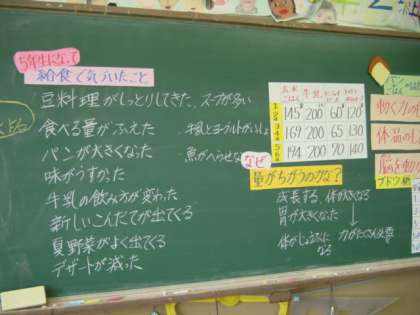 5年生になって
給食で気づいたこと
豆料理がしっとりしてきた スープが多い
食べる量がふえた
パンが大きくなった
味がうすかった
牛乳の飲み方が変わった
新しいこんだてが出てくる
夏野菜がよく出てくる
デザートが減った
牛乳とヨーグルトがいっしょ
魚が
ごはん 牛乳
145 200 60 120
169 200 65 130
194 200 70 140
なぜ
量がちがうのかな？
成長する 体が大きくなる
胃が大きくなった
体がじょうぶになる
力がたくさん必要
体温の
脳を
ブドウ